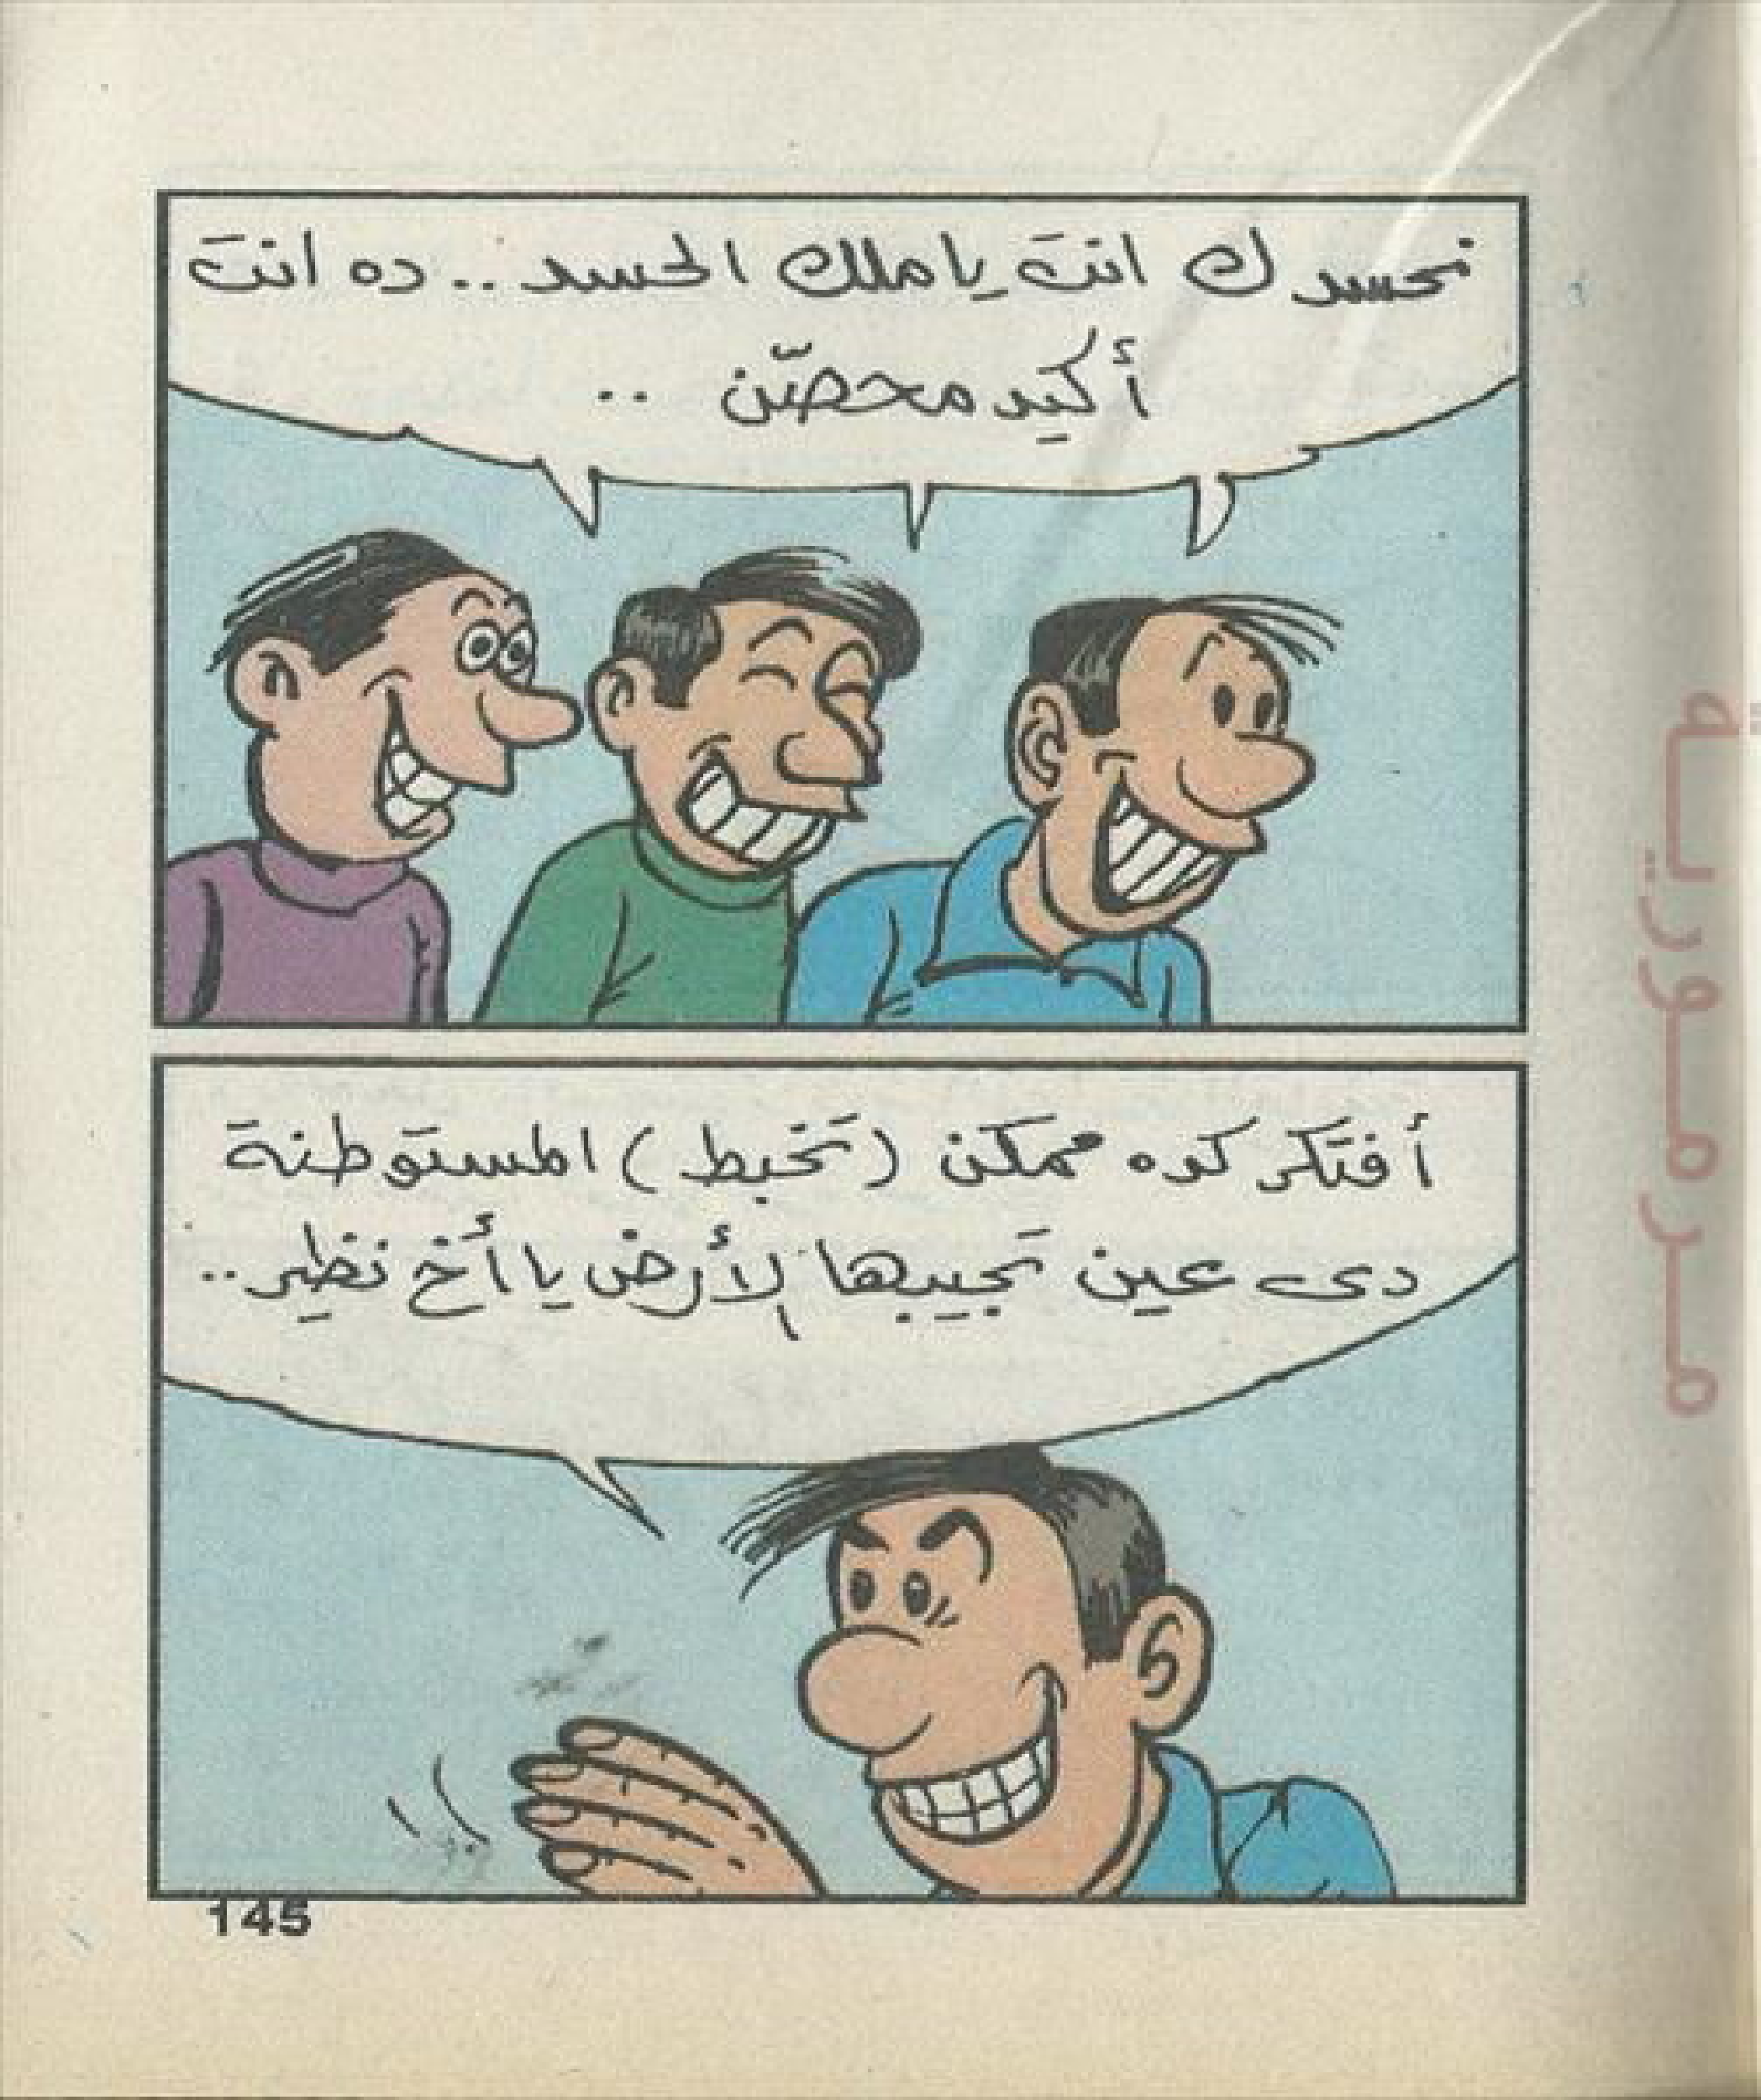 نحسدك انت يا ملك الحسد .. ده انت
أكيد محصّن ..
أفتكر كده ممكن (تخبط) المستوطنة
دى عين تجيبها الأرض يا أخ نظير ..
145
مرمورية